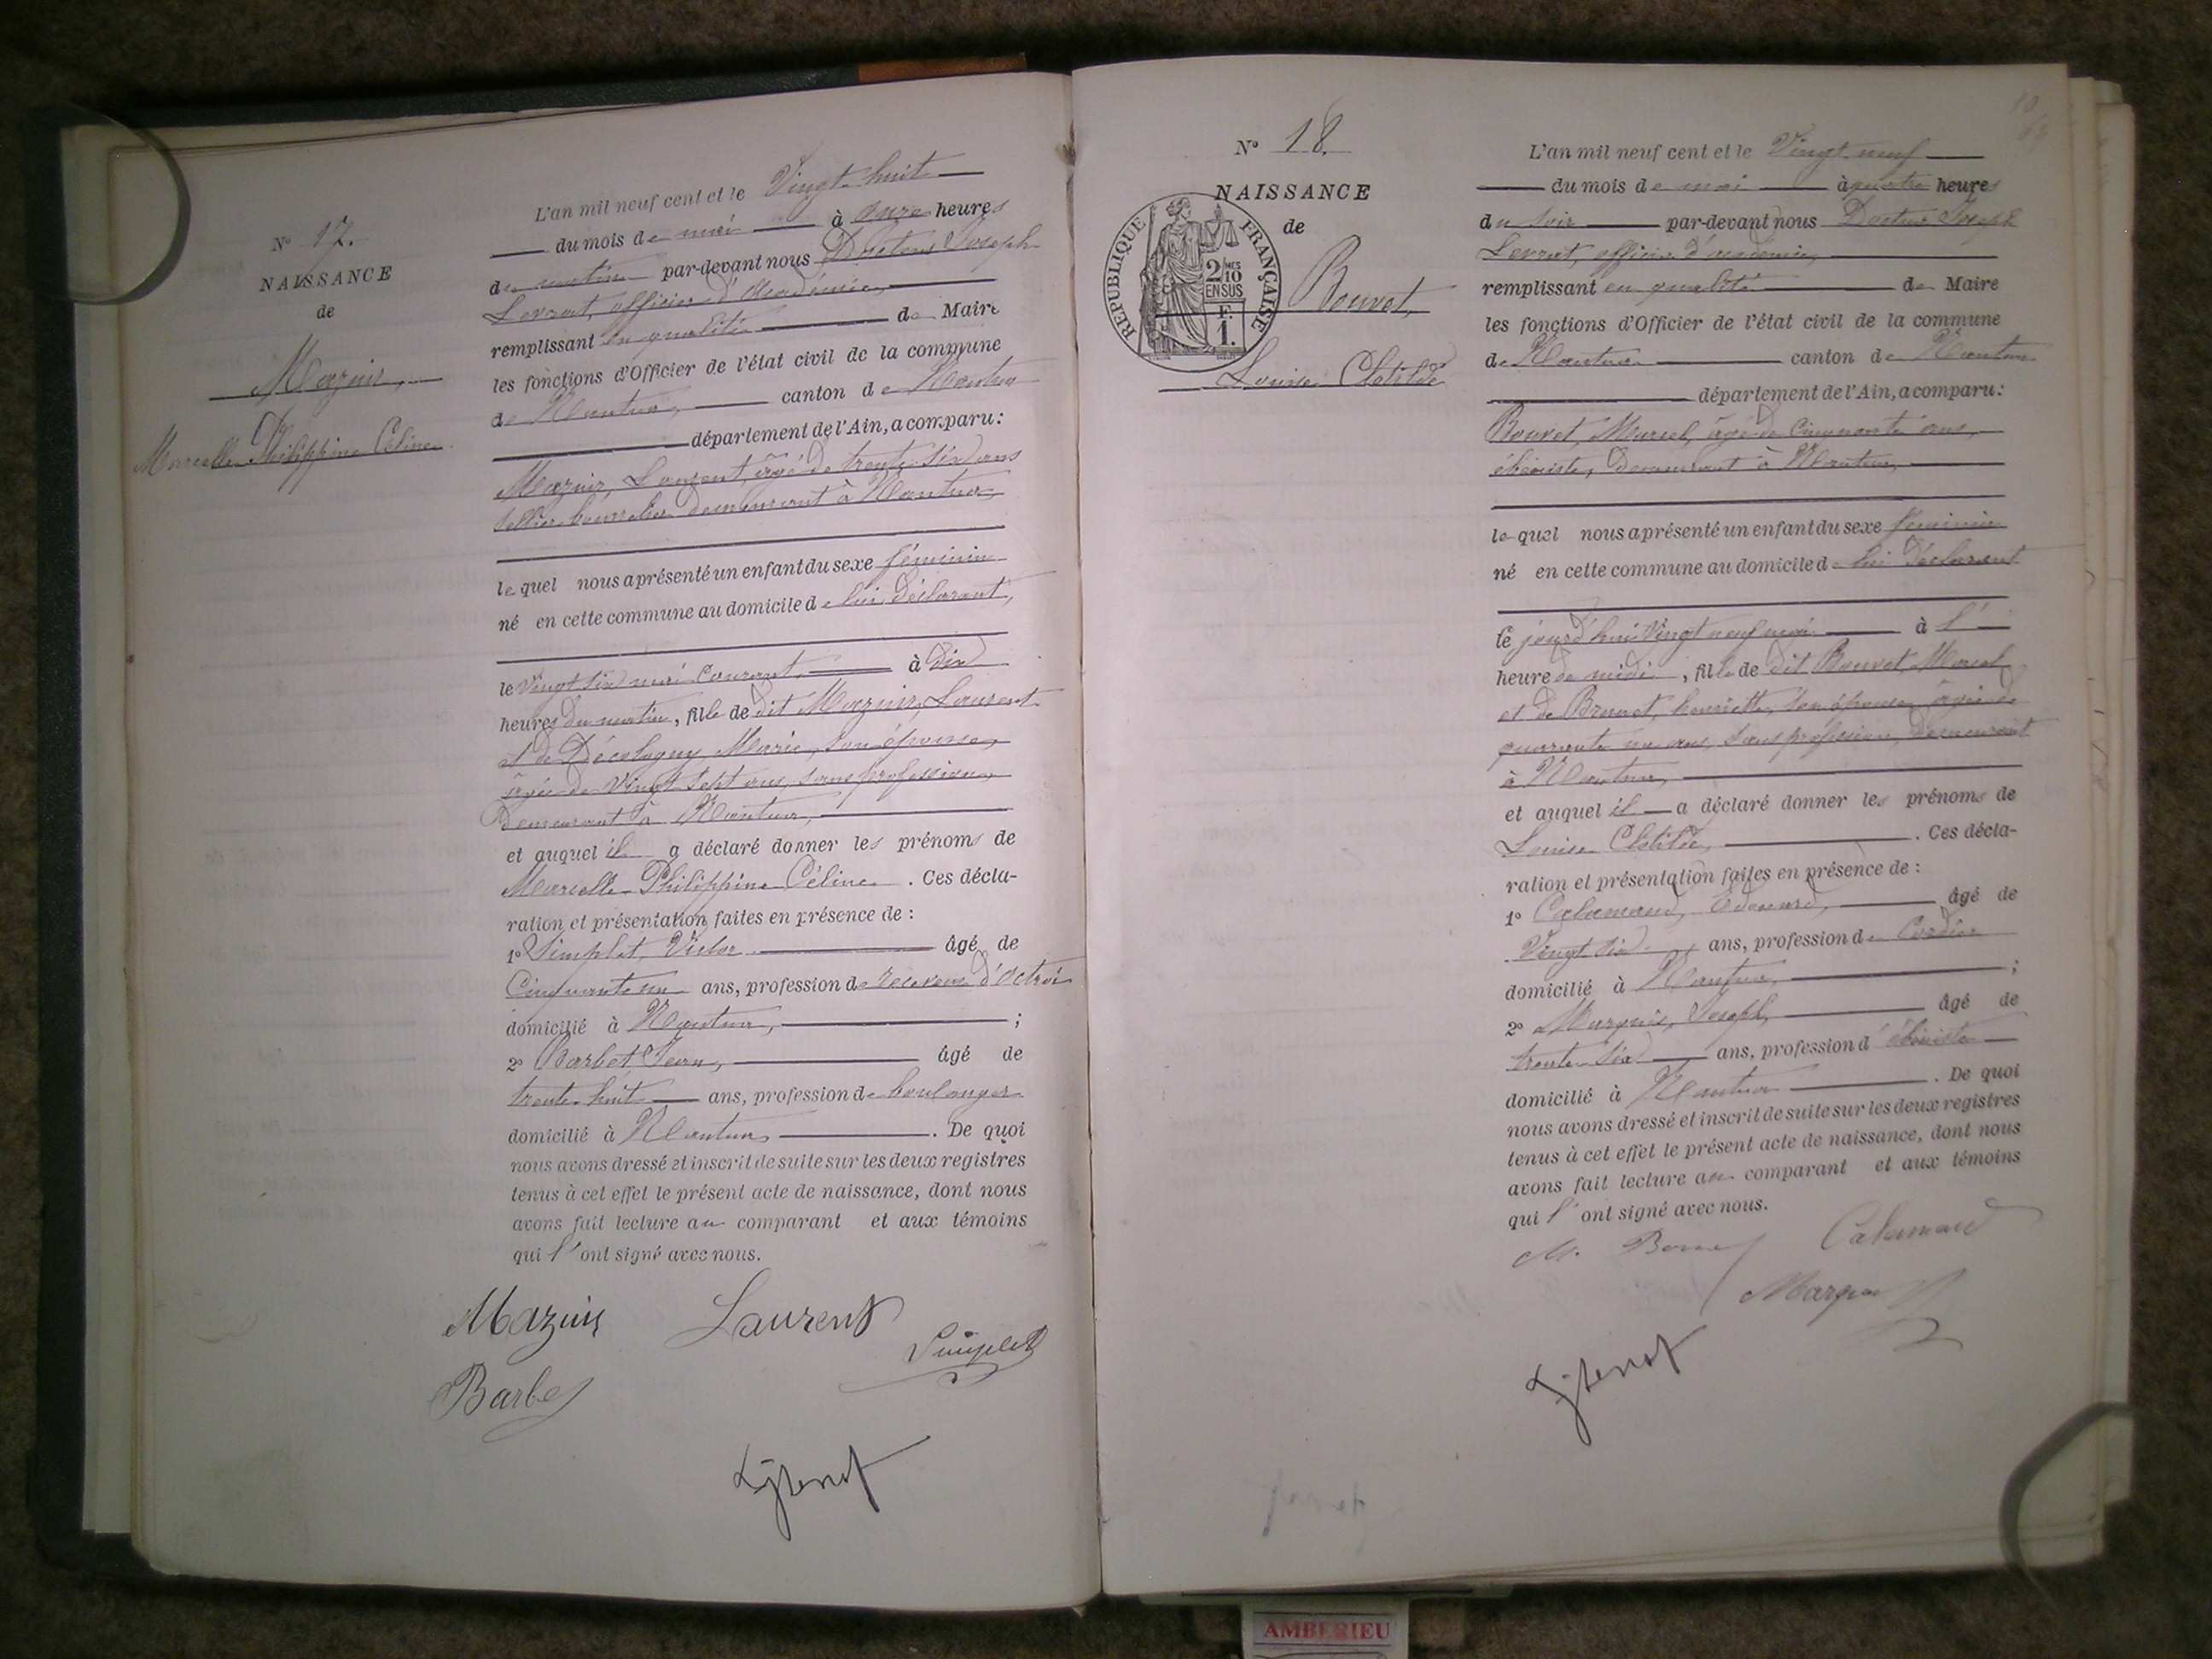 N° 17.
NAISSANCE
de
Mazuir,
Marcelle Philippine Céline
L'an mil neuf cent et le Vingt huit
du mois de mai à onze heures
du matin par-devant nous Docteur Joseph
Levrat, officier d'Académie,
remplissant en qualité de Maire
les fonctions d'Officier de l'état civil de la commune
de Nantua, canton de Nantua
département de l'Ain, a comparu :
Mazuir, Laurent, âgé de trente six ans
sellier bourrelier demeurant à Nantua,
lequel nous a présenté un enfant du sexe féminin
né en cette commune au domicile de lui déclarant,
le Vingt six mai courant à dix
heures du matin, fille de dit Mazuir, Laurent
et de Décologny Marie, son épouse,
âgée de Vingt sept ans, sans profession,
demeurant à Nantua,
et auquel il a déclaré donner les prénoms de
Marcelle Philippine Céline. Ces décla-
ration et présentation faites en présence de :
1° Simplet, Victor âgé de
Cinquante un ans, profession de receveur d'octroi
domicilié à Nantua, ;
2° Barbet, Jean, âgé de
trente huit ans, profession de boulanger
domicilié à Nantua. De quoi
nous avons dressé et inscrit de suite sur les deux registres
tenus à cet effet le présent acte de naissance, dont nous
avons fait lecture au comparant et aux témoins
qui l'ont signé avec nous.
Mazuir Laurent
Simplet
Barbet
N° 18.
NAISSANCE
de
RÉPUBLIQUE FRANÇAISE
2/10 MES
EN SUS
F.
1.
Bouvet,
Louise Clotilde
L'an mil neuf cent et le Vingt neuf
du mois de mai à quatre heures
du soir par-devant nous Docteur Joseph
Levrat, officier d'académie,
remplissant en qualité de Maire
les fonctions d'Officier de l'état civil de la commune
de Nantua canton de Nantua
département de l'Ain, a comparu :
Bouvet, Marcel, âgé de Cinquante ans,
ébéniste, demeurant à Nantua,
lequel nous a présenté un enfant du sexe féminin
né en cette commune au domicile de lui déclarant
le jourd'hui Vingt neuf mai à l'
heure de midi, fille de dit Bouvet, Marcel
et de Brunet, henriette, son épouse, âgée de
quarante un ans, sans profession, demeurant
à Nantua,
et auquel il a déclaré donner les prénoms de
Louise Clotilde, . Ces décla-
ration et présentation faites en présence de :
1° Calamand, Edouard, âgé de
Vingt six ans, profession de
domicilié à Nantua, ;
2° Marquis, Joseph, âgé de
trente six ans, profession d'ébéniste
domicilié à Nantua. De quoi
nous avons dressé et inscrit de suite sur les deux registres
tenus à cet effet le présent acte de naissance, dont nous
avons fait lecture au comparant et aux témoins
qui l'ont signé avec nous.
M. Bouvet Calamand
Marquis
AMBERIEU